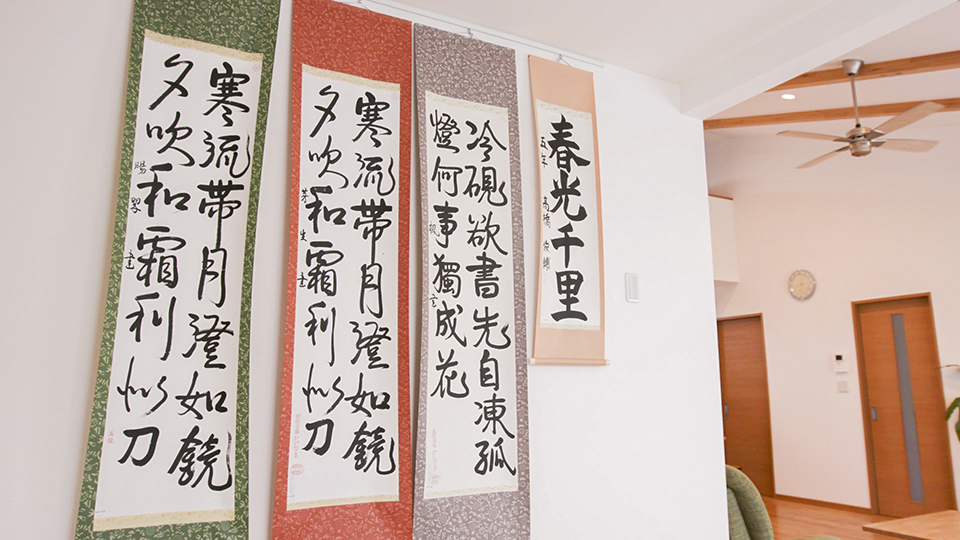 春光千里
五年 高橋
冷硯欲書先自凍孤
燈何事獨成花
寒流帯月澄如鏡
夕吹和霜利似刀
芳生書
寒流帯月澄如鏡
夕吹和霜利似刀
陽翠書